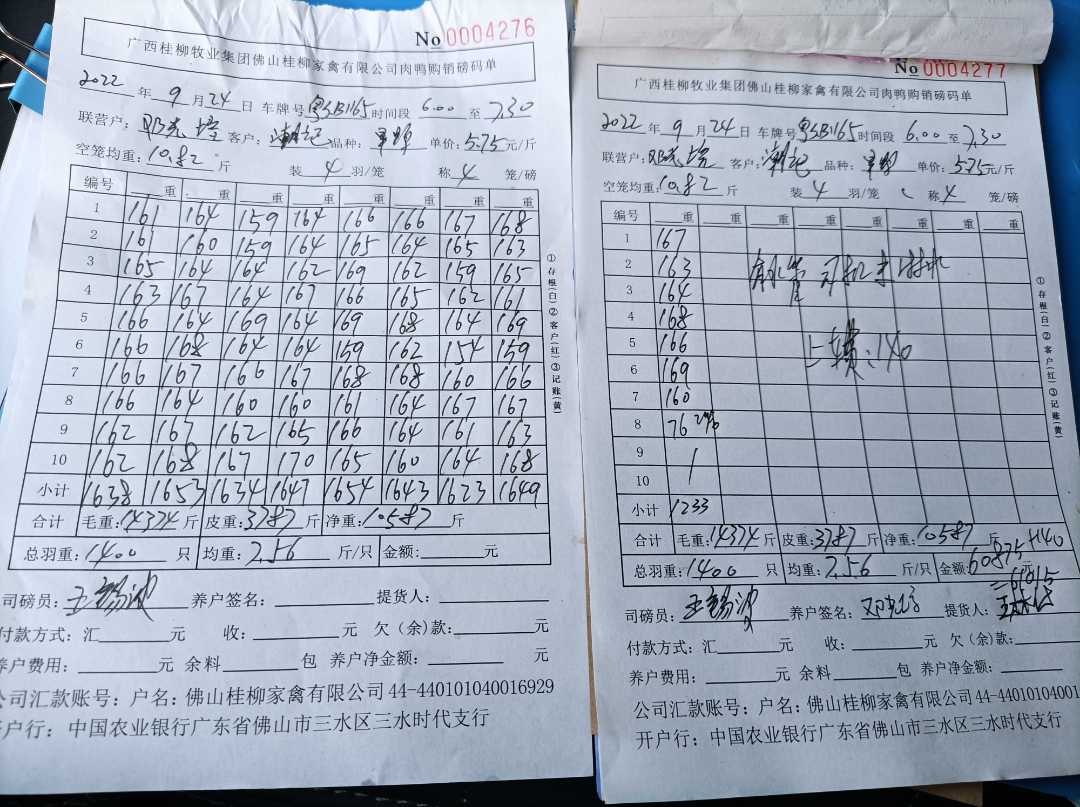 No 0004276
广西桂柳牧业集团佛山桂柳家禽有限公司肉鸭购销磅码单
2022 年 9 月 24 日 车牌号 粤SB1165 时间段 6.00 至 7.30
联营户: 客户: 品种: 单价: 5.75 元/斤
空笼均重: 10.82 斤 装 4 羽/笼 称 4 笼/磅
编号 重 重 重 重 重 重 重 重
1 161 164 159 164 166 166 167 168
2 161 160 159 164 165 164 165 163
3 165 164 164 162 169 162 159 165
4 163 167 164 167 166 165 162 161
5 166 164 169 164 169 168 164 169
6 166 168 164 164 159 162 154 159
7 166 167 166 167 168 168 160 166
8 166 164 160 160 161 164 167 167
9 162 167 162 165 166 164 161 163
10 162 168 167 170 165 160 164 168
小计 1638 1653 1634 1647 1654 1643 1623 1649
合计 毛重: 14374 斤 皮重: 3787 斤 净重: 10587 斤
总羽重: 1400 只 均重: 7.56 斤/只 金额: 元
司磅员: 王锡波 养户签名: 提货人:
付款方式: 汇 元 收: 元 欠(余)款:
养户费用: 元 余料 包 养户净金额: 元
公司汇款账号: 户名: 佛山桂柳家禽有限公司 44-440101040016929
开户行: 中国农业银行广东省佛山市三水区三水时代支行
①存根(白)②客户(红)③记账(黄)
No 0004277
广西桂柳牧业集团佛山桂柳家禽有限公司肉鸭购销磅码单
2022 年 9 月 24 日 车牌号 粤SB1165 时间段 6.00 至 7.30
联营户: 客户: 品种: 单价: 5.75 元/斤
空笼均重: 10.82 斤 装 4 羽/笼 称 4 笼/磅
编号 重 重 重 重 重 重 重 重
1 167
2 163
3 164
4 168
5 166
6 169
7 160
8 76
9
10
小计 1233
上车费:140
合计 毛重: 14374 斤 皮重: 3787 斤 净重: 10587 斤
总羽重: 1400 只 均重: 7.56 斤/只 金额: 60875 元 +140
=61015
司磅员: 王锡波 养户签名: 提货人:
付款方式: 汇 元 收: 元 欠(余)款:
养户费用: 元 余料 包 养户净金额:
公司汇款账号: 户名: 佛山桂柳家禽有限公司 44-44010104001
开户行: 中国农业银行广东省佛山市三水区三水时代支行
①存根(白)②客户(红)③记账(黄)